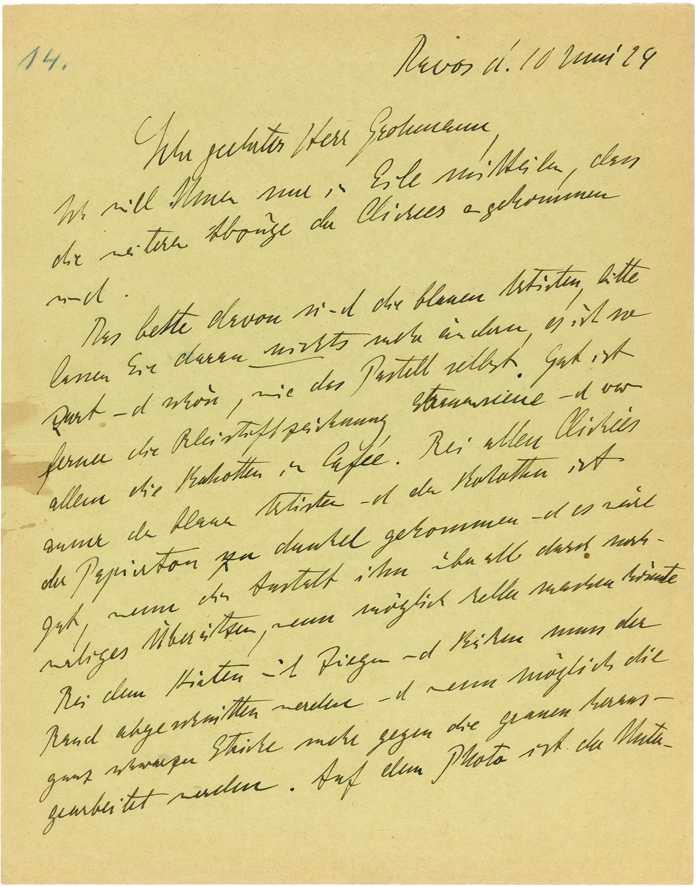 14.
Davos d. 10 Juni 24
Sehr geehrter Herr Grohmann,
Ich will Ihnen nur in Eile mitteilen, dass
die weiteren Abzüge der Clichées angekommen
sind.
Das beste davon sind die blauen Artisten, bitte
lassen Sie daran nichts mehr ändern, es ist so
zart und schön, wie das Pastell selbst. Gut ist
ferner die Bleistiftzeichnung Strassenscene und vor
allem die Kokotten in Cafée. Bei allen Clichées
ausser den blauen Artisten und den Kokotten ist
der Papierton zu dunkel gekommen und es wäre
gut, wenn die Anstalt ihn überall durch noch-
maliges Überätzen, wenn möglich heller machen könnte
Bei dem Hirten mit Ziegen und Kühen muss der
Rand abgeschnitten werden und wenn möglich die
ganz schwarzen Stücke mehr gegen die grauen heraus-
gearbeitet werden. Auf dem Photo ist der Unter-